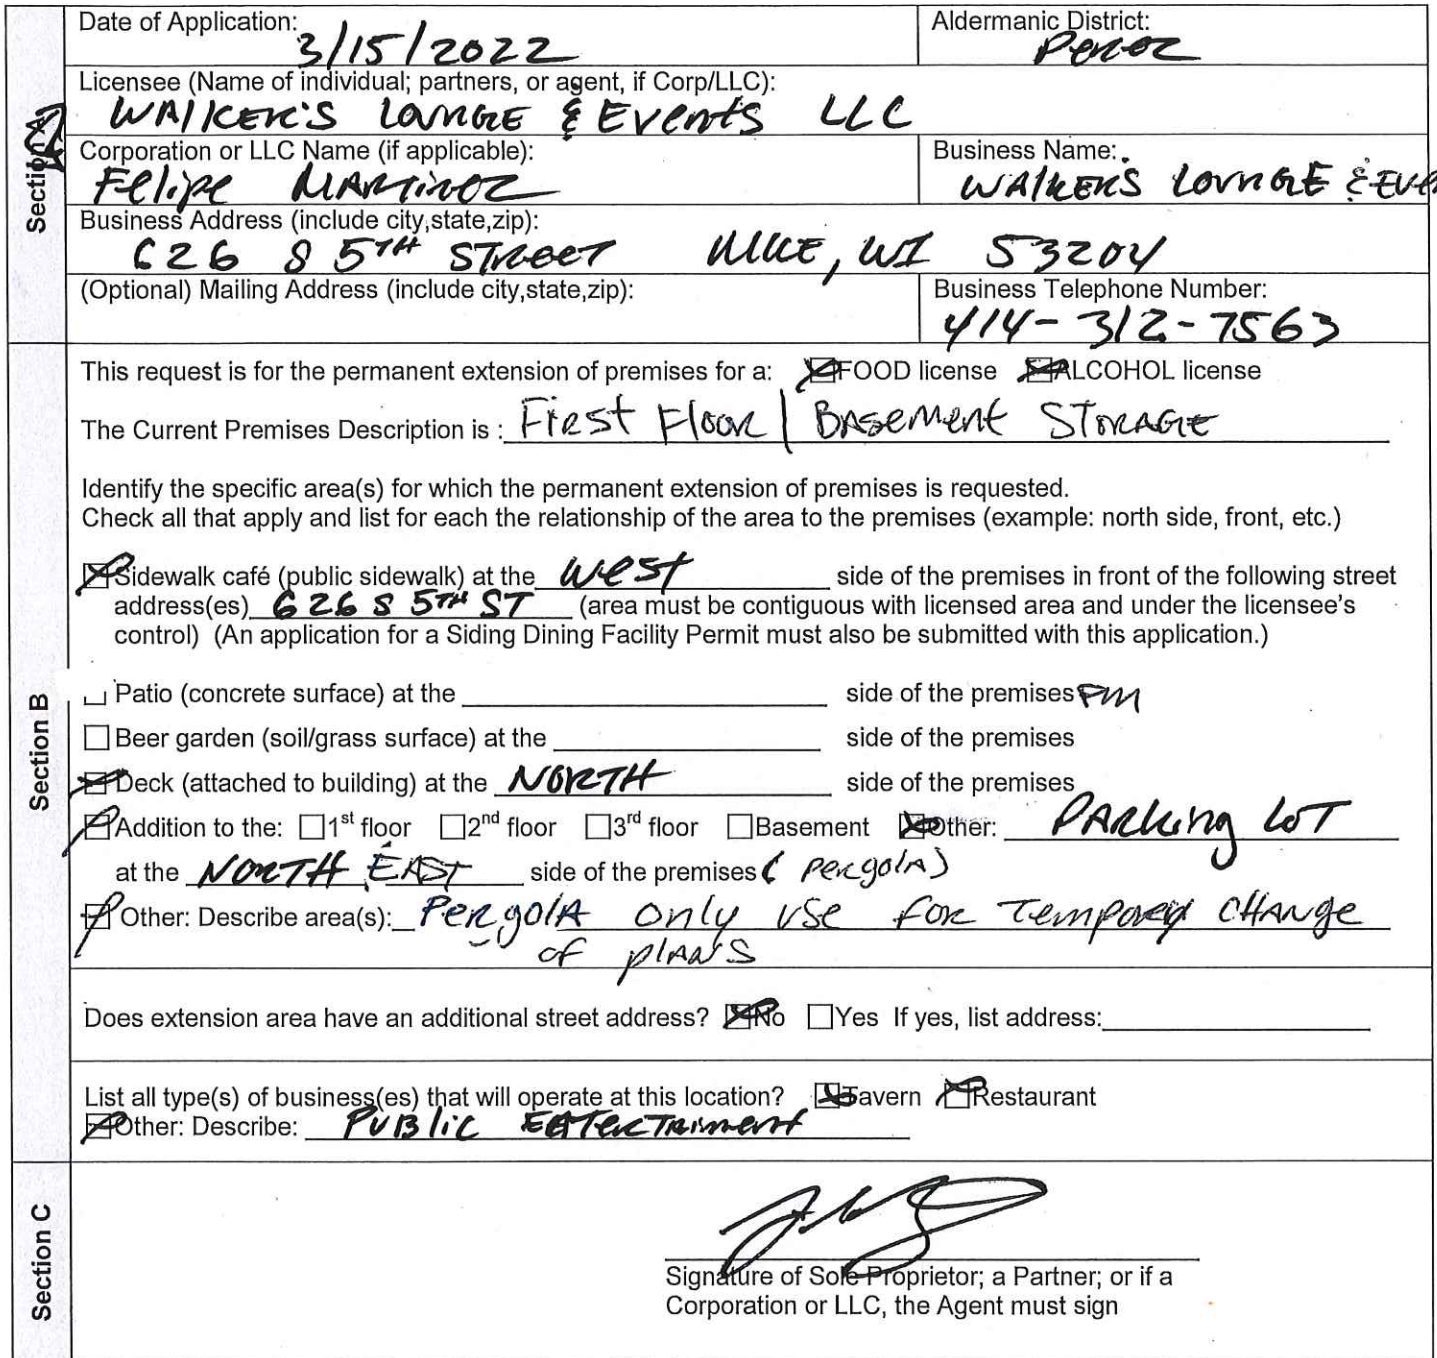 Date of Application: Aldermanic District:
3/15/2022 Perez
Licensee (Name of individual; partners, or agent, if Corp/LLC):
WAlKER'S LOUNGE & Events LLC
Corporation or LLC Name (if applicable): Business Name:
Felipe MARTINEZ WAlKERS LOUNGE & EVE
Business Address (include city,state,zip):
626 S 5TH STREET MKE, WI 53204
(Optional) Mailing Address (include city,state,zip): Business Telephone Number:
414-312-7563
Section A
This request is for the permanent extension of premises for a: ☒FOOD license ☒ALCOHOL license
The Current Premises Description is : First Floor | Basement STORAGE
Identify the specific area(s) for which the permanent extension of premises is requested.
Check all that apply and list for each the relationship of the area to the premises (example: north side, front, etc.)
☒Sidewalk café (public sidewalk) at the west side of the premises in front of the following street
address(es) 626 S 5TH ST (area must be contiguous with licensed area and under the licensee's
control) (An application for a Siding Dining Facility Permit must also be submitted with this application.)
☐Patio (concrete surface) at the side of the premises FM
☐Beer garden (soil/grass surface) at the side of the premises
☒Deck (attached to building) at the NORTH side of the premises
☒Addition to the: ☐1st floor ☐2nd floor ☐3rd floor ☐Basement ☒Other: PARking LOT
at the NORTH EAST side of the premises ( PergolA)
☒Other: Describe area(s): PergolA only USE for Tempory CHANge
of plANS
Section B
Does extension area have an additional street address? ☒No ☐Yes If yes, list address:
List all type(s) of business(es) that will operate at this location? ☒Tavern ☒Restaurant
☒Other: Describe: PUBlic
Section C
Signature of Sole Proprietor; a Partner; or if a
Corporation or LLC, the Agent must sign